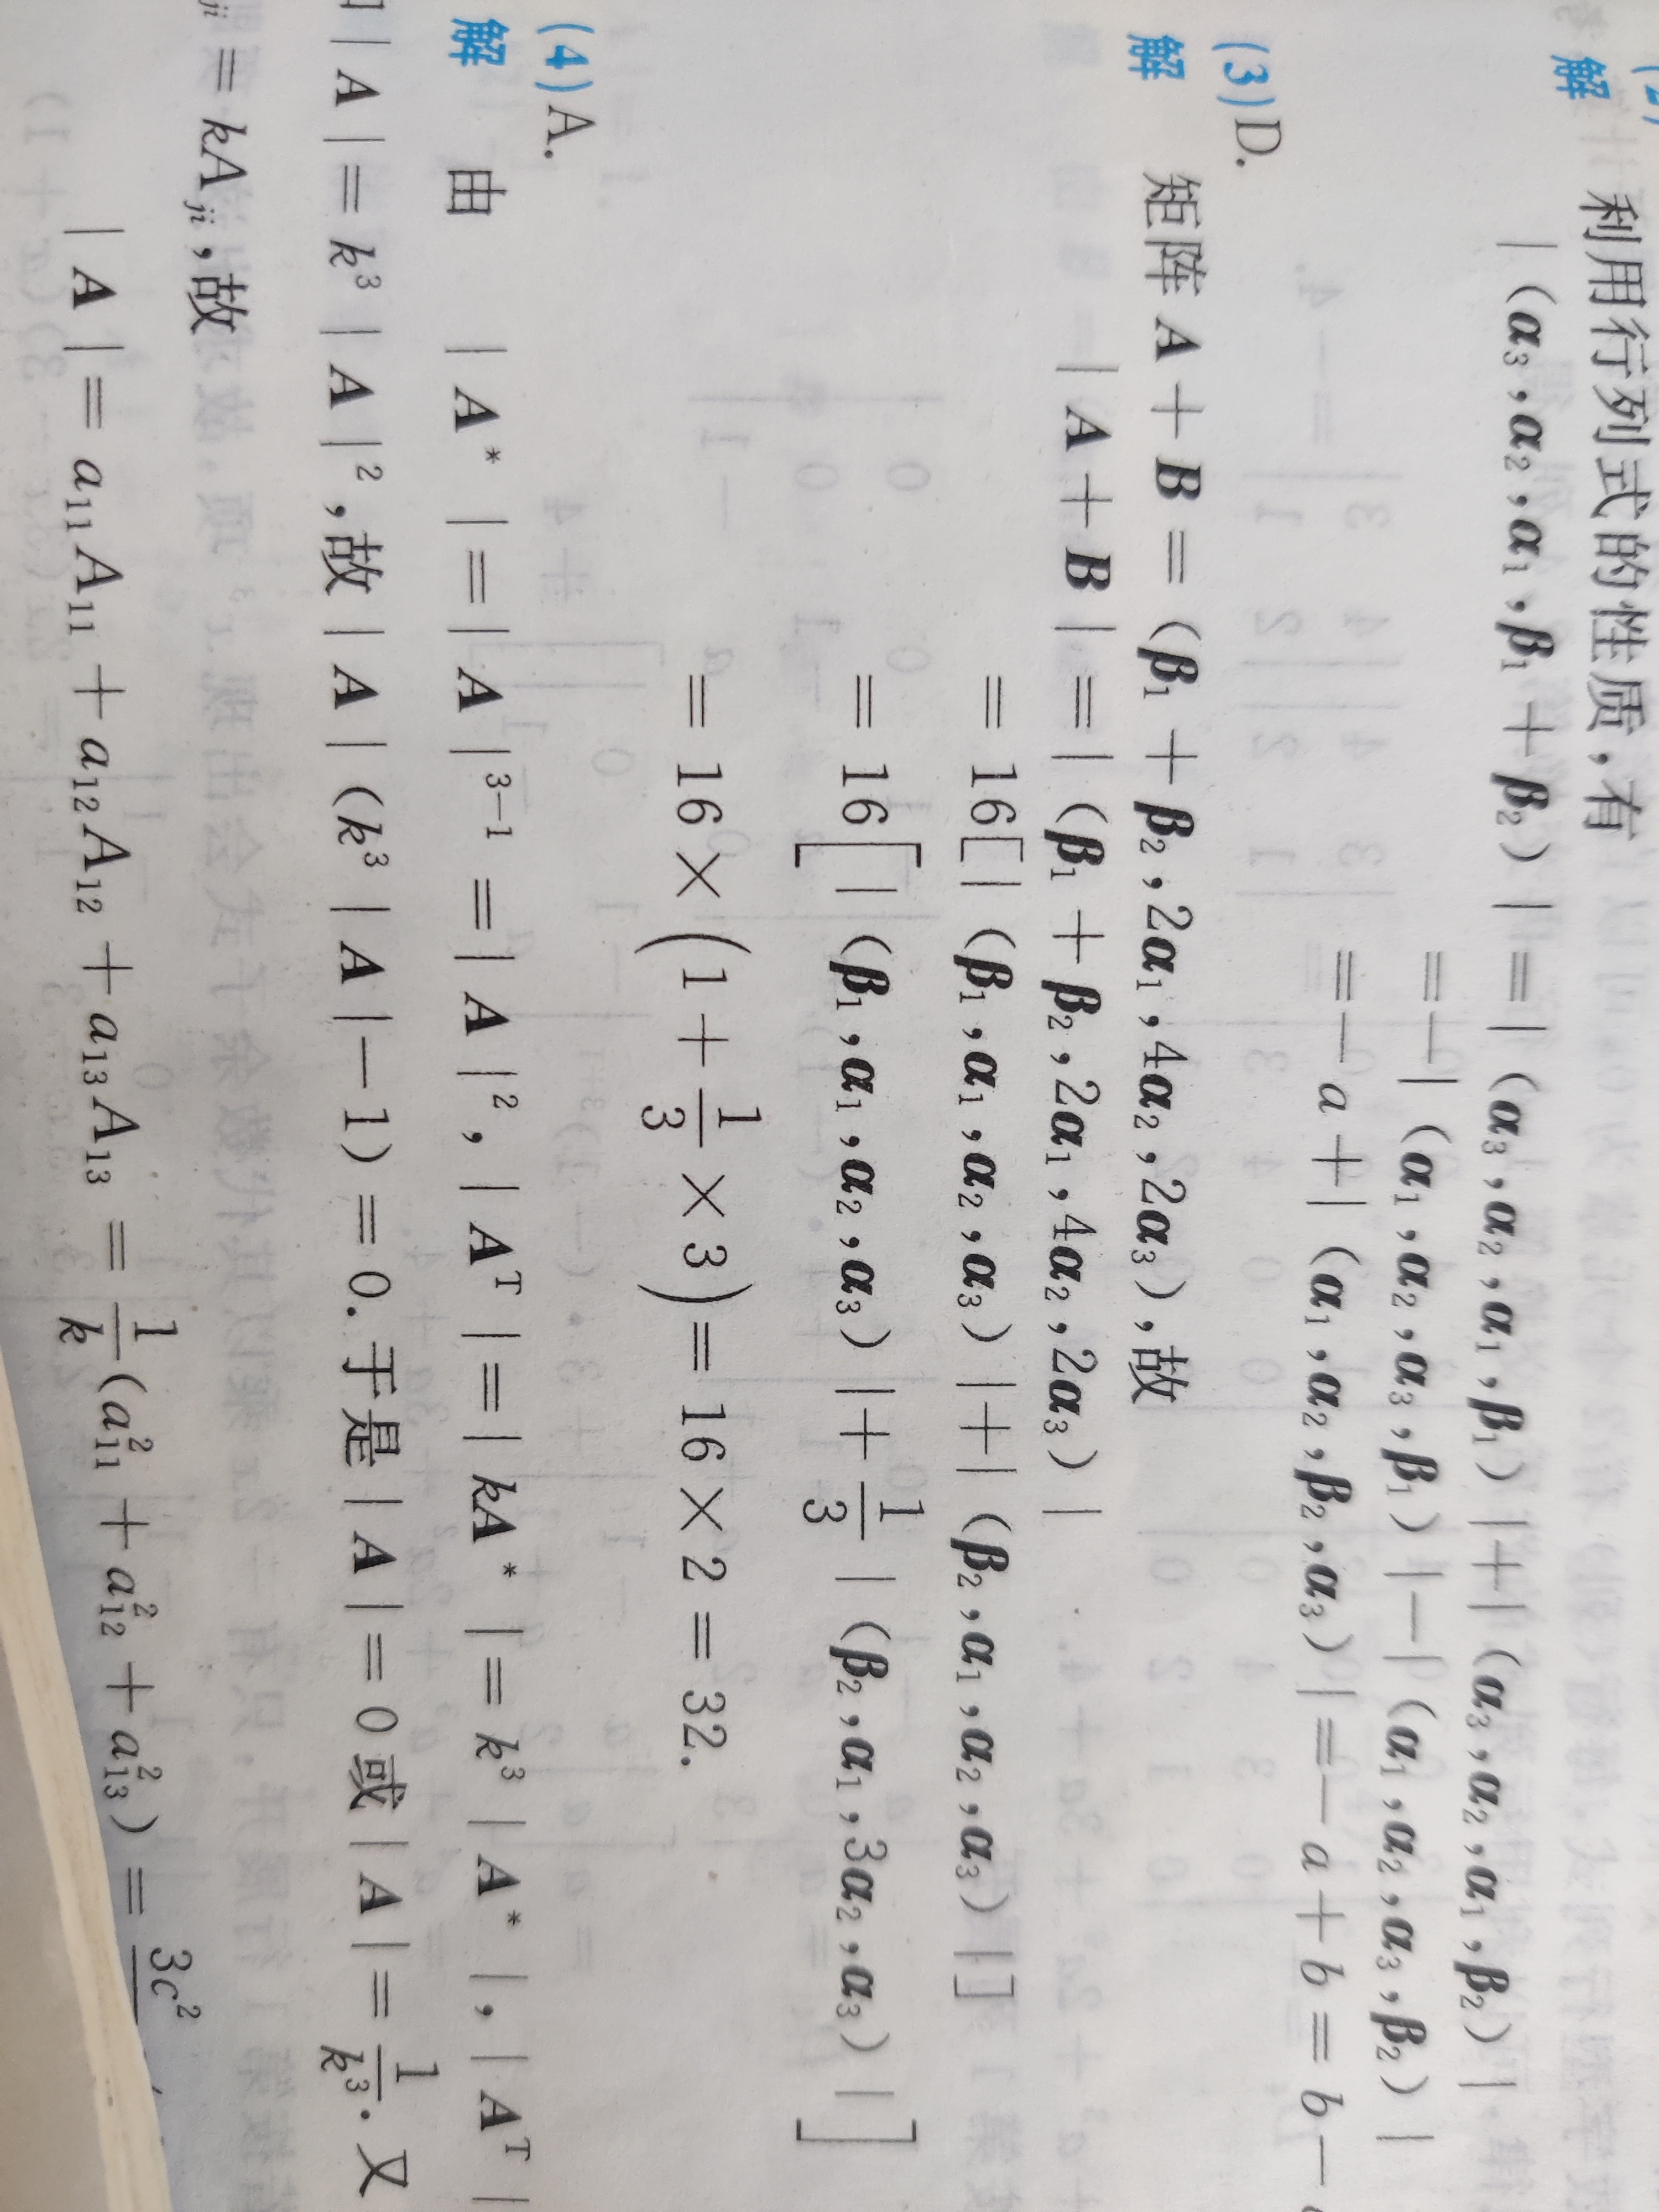 解 利用行列式的性质,有
|(α₃,α₂,α₁,β₁+β₂)|=|(α₃,α₂,α₁,β₁)|+|(α₃,α₂,α₁,β₂)|
=-|(α₁,α₂,α₃,β₁)|-|(α₁,α₂,α₃,β₂)|
=-a+|(α₁,α₂,β₂,α₃)|=-a+b=b-
(3)D.
解 矩阵A+B=(β₁+β₂,2α₁,4α₂,2α₃),故
|A+B|=|(β₁+β₂,2α₁,4α₂,2α₃)|
=16[|(β₁,α₁,α₂,α₃)|+|(β₂,α₁,α₂,α₃)|]
=16[|(β₁,α₁,α₂,α₃)|+1/3|(β₂,α₁,3α₂,α₃)|]
=16×(1+1/3×3)=16×2=32.
(4)A.
解 由 |A*|=|A|³⁻¹=|A|²,|Aᵀ|=|kA*|=k³|A*|,|Aᵀ|
|A|=k³|A|²,故|A|(k³|A|-1)=0.于是|A|=0或|A|=1/k³.又
ⱼᵢ=kAⱼᵢ,故
|A|=a₁₁A₁₁+a₁₂A₁₂+a₁₃A₁₃=1/k(a₁₁²+a₁₂²+a₁₃²)=3c²